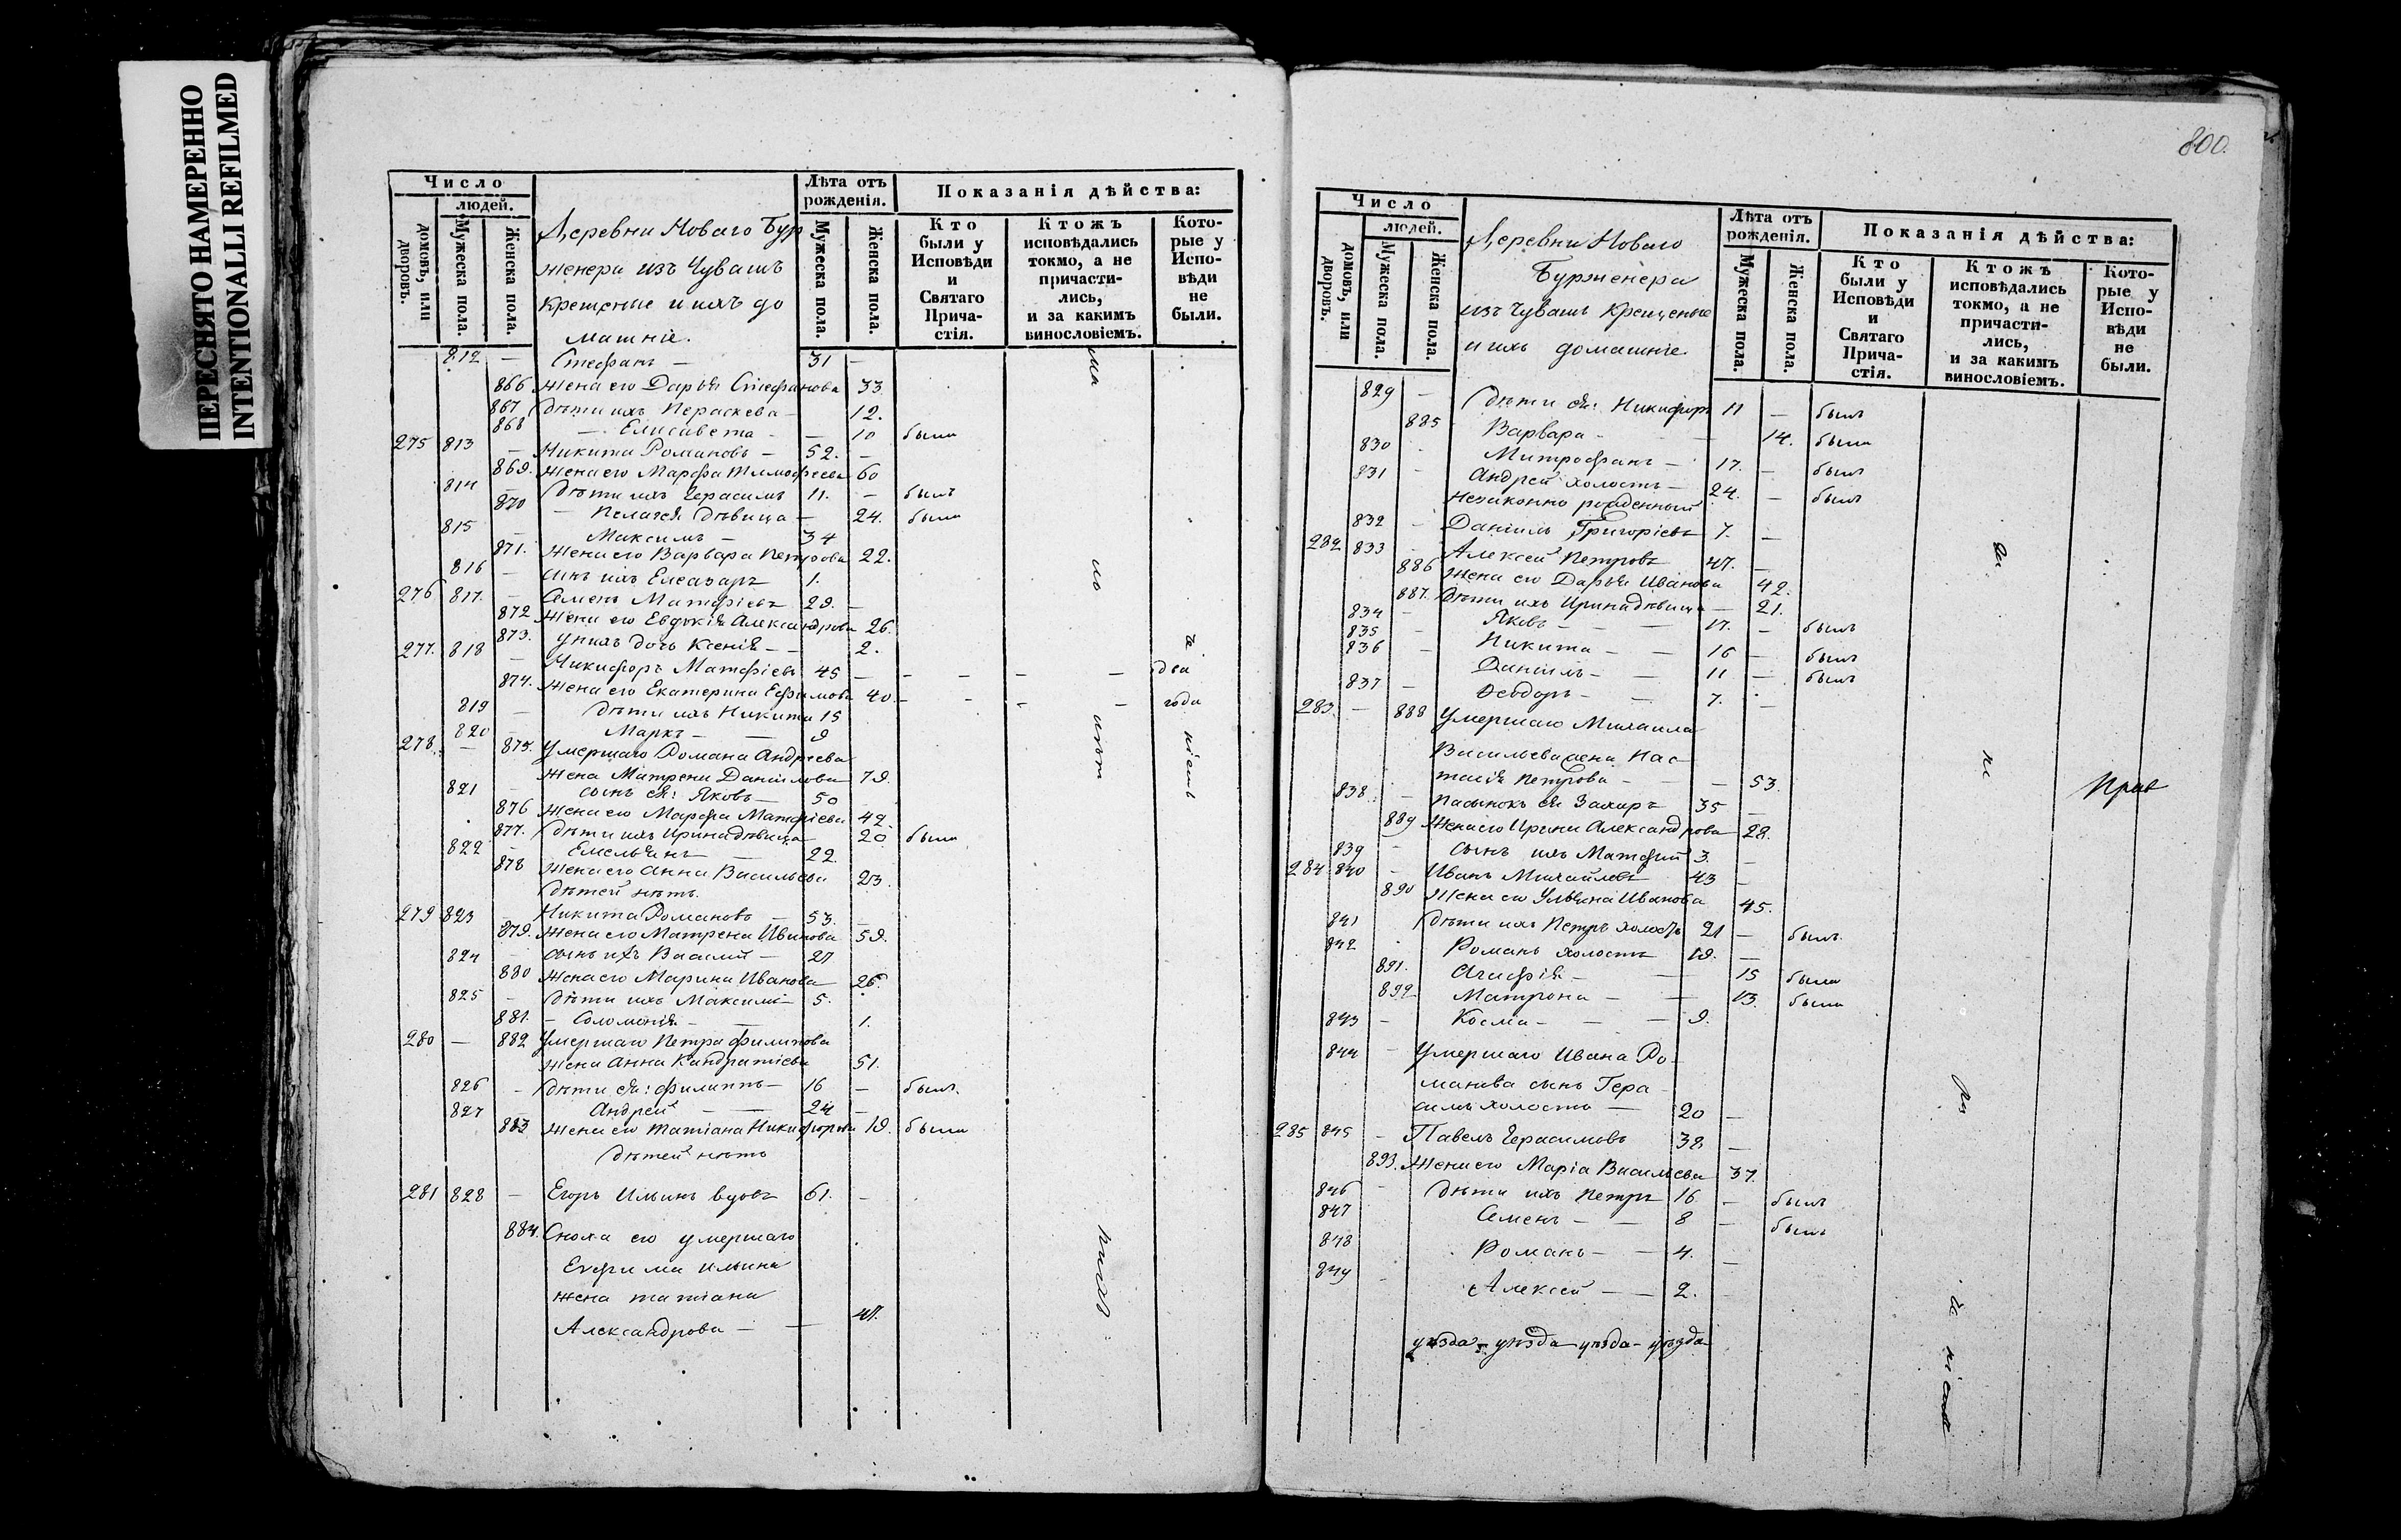 ПЕРЕСНЯТО НАМЕРЕННО
INTENTIONALLI REFILMED
Число
людей.
домовъ, или дворовъ.
Мужеска пола.
Женска пола.
Деревни Новаго Бур
женера изъ Чувашъ
крещеные и ихъ до
машніе.
Лѣта отъ рожденія.
Мужеска пола.
Женска пола.
Показанія дѣйства:
Кто были у Исповѣди и Святаго Прича-стія.
Ктожъ исповѣдались токмо, а не причасти-лись, и за какимъ винословіемъ.
Кото-рые у Испо-вѣди не были.
812 — Стефанъ — 31 —
866 жена его Дарья Стефанова 33
867 Дѣти ихъ Пераскева — 12.
868 — Елисавета — — 10 была
275 813 — Никита Романовъ — 52. —
869. жена его Марфа Тимофеева 60
814 — Дѣти ихъ Герасимъ 11. — былъ
870 — Пелагея дѣвица — 24. была
815 — Максимъ — 34
871. жена его Варвара Петрова 22.
816 — сынъ ихъ Елеазаръ 1.
276 817. — Семенъ Матфіевъ 29. —
872 жена его Евдокія Александрова 26.
873. у нихъ дочь Ксенія — — 2.
277. 818 — Никифоръ Матфіевъ 45 — — — — — два
874. жена его Екатерина Ефимова 40. — — — года
819 — Дѣти ихъ Никита 15
820 — Маркъ — — 9
278. — 875. Умершаго Романа Андреева
жена Матрена Даніилова 79.
821 — сынъ ея: Яковъ — 50 —
876 жена его Марфа Матфіева 42.
877. Дѣти ихъ Ирина дѣвица 20 была
822 — Емельянъ — 22.
878 жена его Анна Васильева 23.
Дѣтей нѣтъ.
279 823 — Никита Романовъ — 53. —
879. жена его Матрена Иванова 59.
824 — сынъ ихъ Василій — 27
880 жена его Марина Иванова 26.
825 — Дѣти ихъ Максимъ — 5.
881. — Соломонія — — 1.
280 — 882 Умершаго Петра Филипова
жена Анна Кандратіева 51.
826 — Дѣти ея: Филиппъ — 16 — былъ.
827 — Андрей — — 24 —
883 жена его Татіана Никифорова 19. была
Дѣтей нѣтъ
281 828 — Егоръ Ильинъ вдовъ 61. —
884. Сноха его умершаго
Евфима Ильина
жена Татіана
Александрова — — 47.
800.
Число
людей.
домовъ, или дворовъ.
Мужеска пола.
Женска пола.
Деревни Новаго
Бурженера
изъ Чувашъ Крещеные
и ихъ домашніе.
Лѣта отъ рожденія.
Мужеска пола.
Женска пола.
Показанія дѣйства:
Кто были у Исповѣди и Святаго Прича-стія.
Ктожъ исповѣдались токмо, а не причасти-лись, и за какимъ винословіемъ.
Кото-рые у Испо-вѣди не были.
829 — Дѣти ея: Никифоръ 11 — былъ
885 Варвара — — 14. была
830 Митрофанъ — 17. — былъ
831 — Андрей холостъ — 24. — былъ
незаконно рожденный
832 — Даніилъ Григоріевъ 7. —
282 833 — Алексей Петровъ 47. —
886 жена его Дарья Иванова 42.
887. Дѣти ихъ Ирина дѣвица — 21.
834 — Яковъ — — 17. — былъ
835 — Никита — — 16 — былъ
836 — Даніилъ — — 11 — былъ
837 — Феодоръ — — 7. —
283. — 888 Умершаго Михаила
Васильева жена Нас-
тасія Петрова — — 53.
838. — пасынокъ ея Захаръ 35 —
889 жена его Ирина Александрова 28.
839 — сынъ ихъ Матфий 3. —
284 840 — Иванъ Михайловъ 43 —
890 Жена его Ульяна Иванова 45.
841 Дѣти ихъ Петръ холостъ 21 — былъ.
842 Романъ холостъ 19. —
891. Агафія — — 15 была
892 Матрона — — 13. была
843 — Косма — — — 9.
844 — Умершаго Ивана Ро-
манова сынъ Гера-
симъ холостъ — 20 —
285 845 — Павелъ Герасимовъ 38 —
893. Жена его Маріа Васильева 37.
846 — Дѣти ихъ Петръ 16 — былъ
847 Семенъ — — 8 — былъ
848 Романъ — — 4. —
849 — Алексей — — 2. —
уѣзда — уѣзда — уѣзда — уѣзда